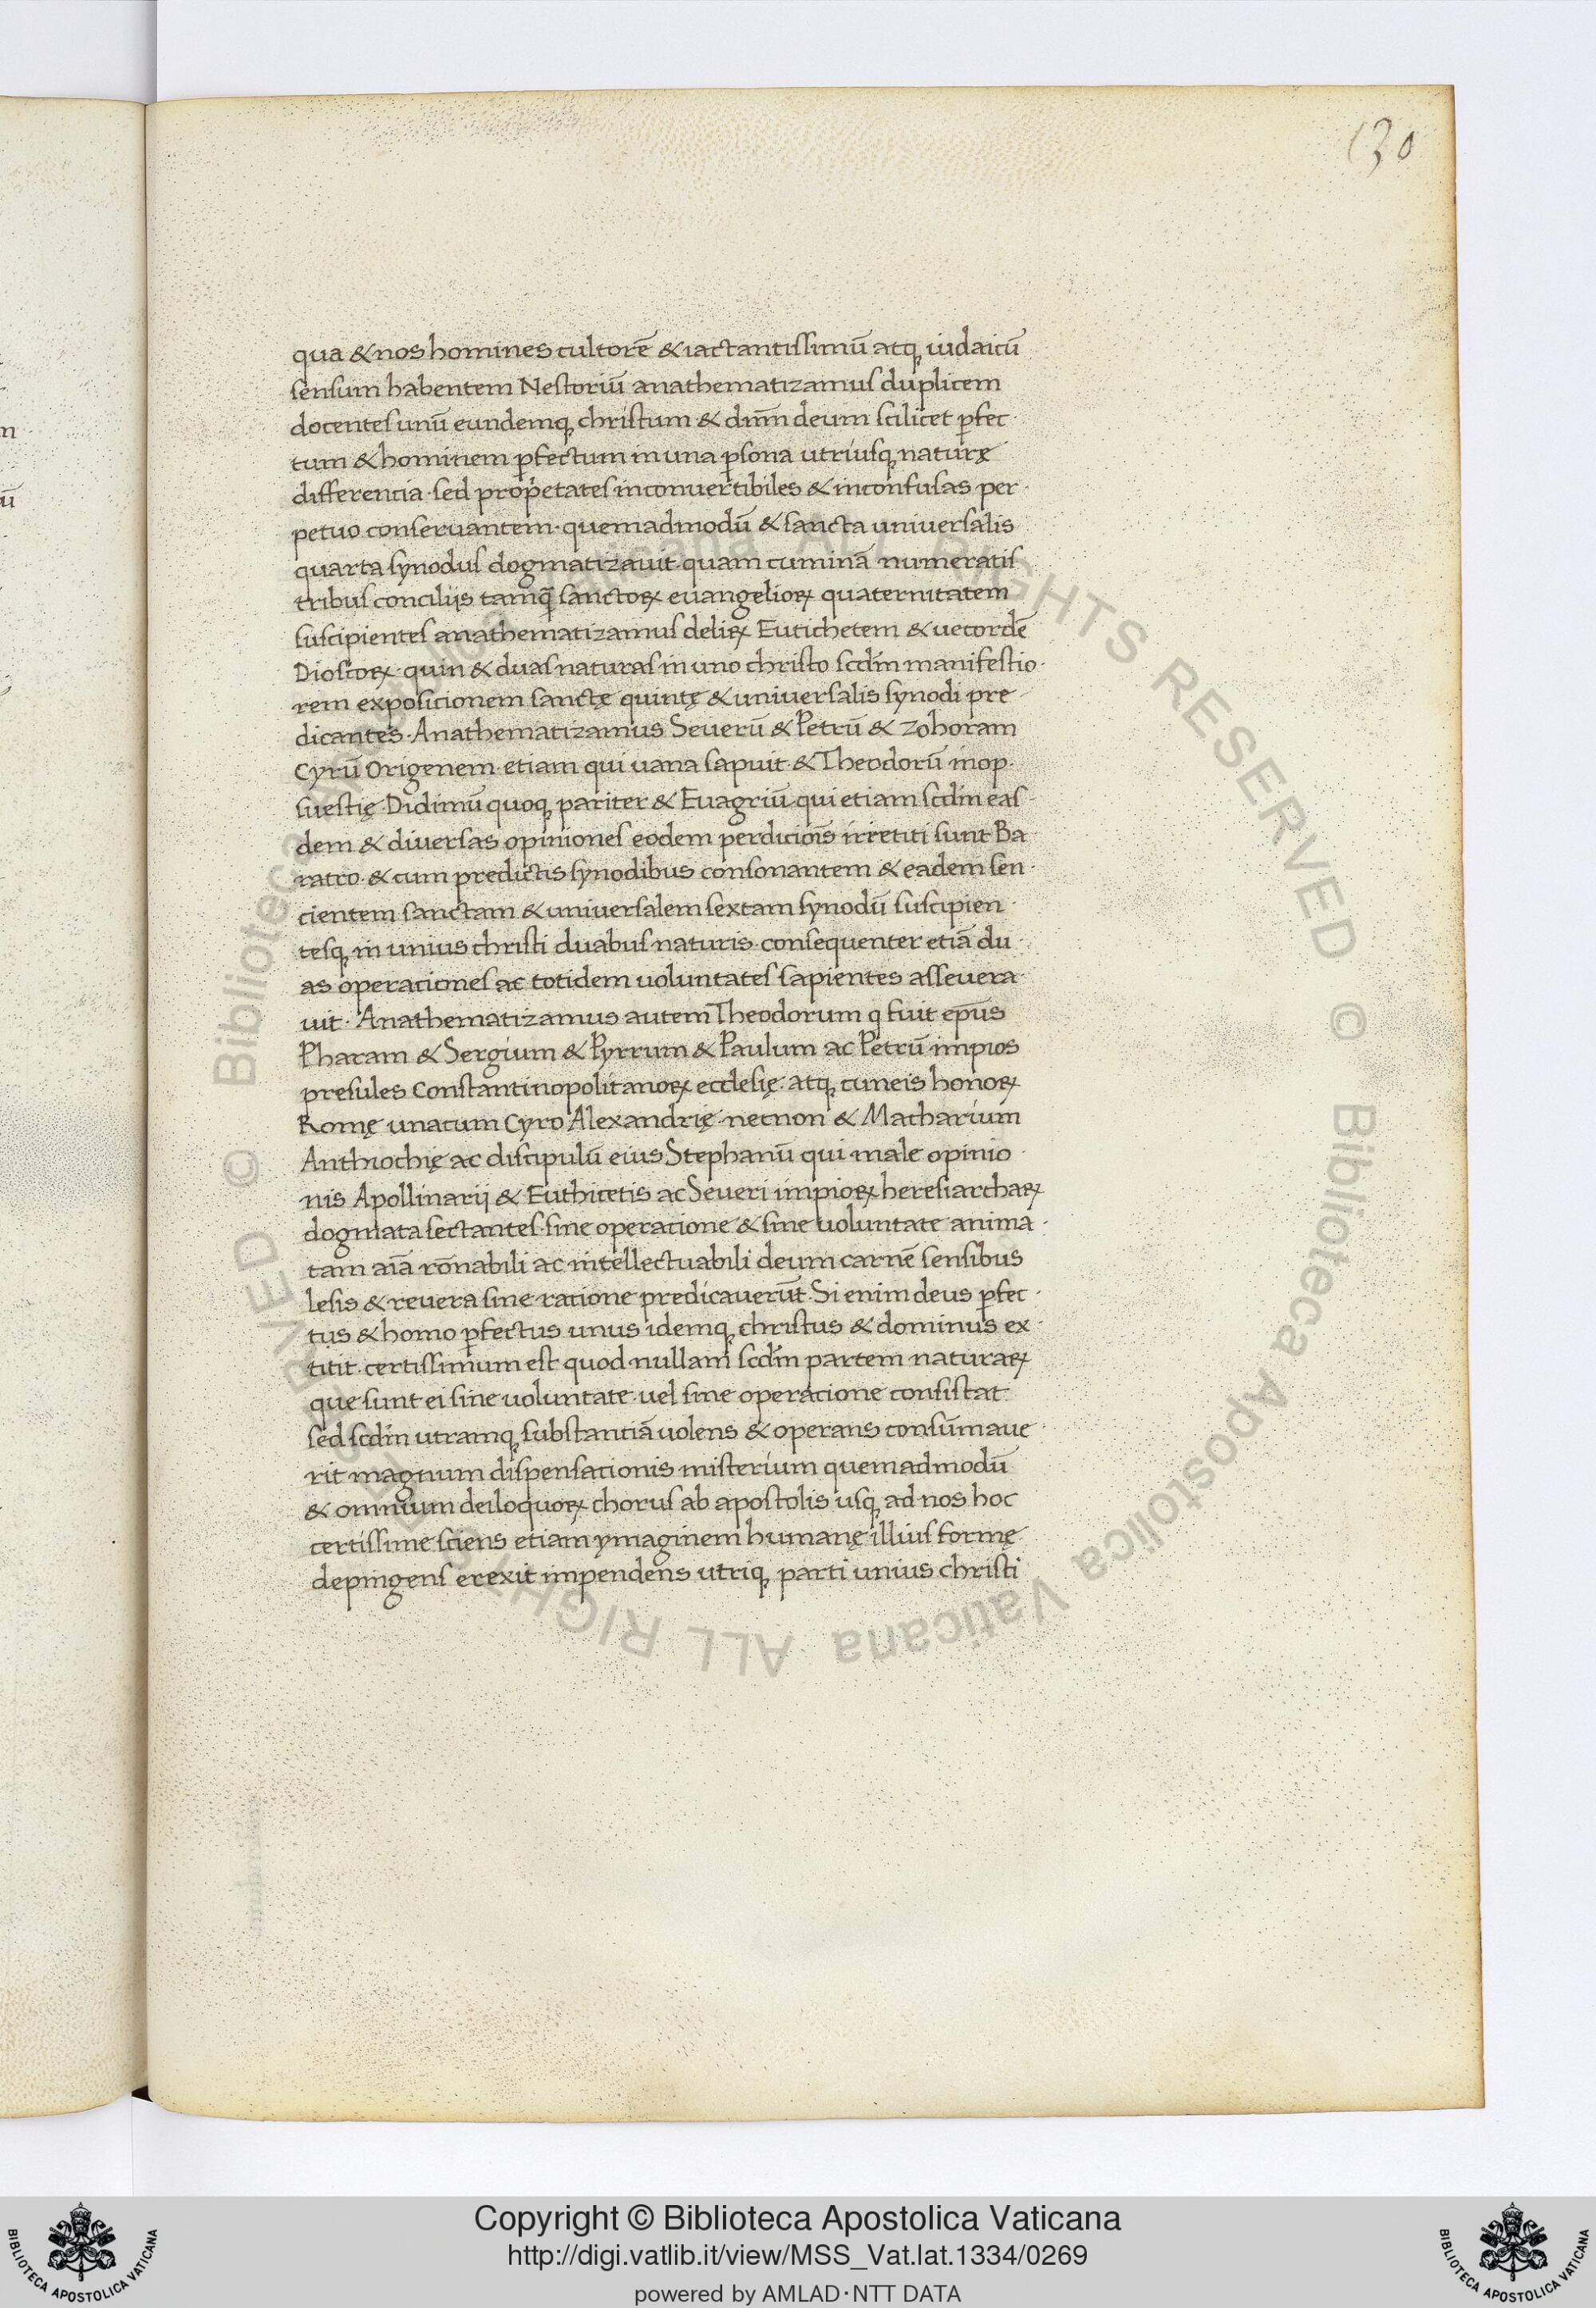 130
qua & nos homines cultorē & iactantissimū atq; iudaicū
sensum habentem Nestoriū anathematizamus duplicem
docentes unū eundemq; christum & dnm̄ deum scilicet ꝑfec
tum & hominem ꝑfectum in una ꝑsona utriusq; naturę
differentia · sed propetates inconuertibiles & inconfusas per
petuo conseruantem · quemadmodū & sancta uniuersalis
quarta synodus dogmatizauit · quam cum inā numeratis
tribus conciliis tamq̄ sanctoꝝ euangelioꝝ quaternitatem
suscipientes anathematizamus deliꝝ Eutichetem & uecordē
Dioscoꝝ · quin & duas naturas in uno christo scdm̄ manifestio
rem expositionem sanctę quintę & uniuersalis synodi pre
dicantes · Anathematizamus Seuerū & Petrū & Zohoram
Cyrū Origenem · etiam qui uana sapuit · & Theodorū mop
suestię · Didimū quoq; pariter & Euagriū · qui etiam scdm̄ eas
dem & diuersas opiniones eodem perditiōis irretiti sunt Ba
ratro · & cum predictis synodibus consonantem & eadem sen
tientem sanctam & uniuersalem sextam synodū suscipien
tesq; in unius christi duabus naturis consequenter etiā du
as operationes ac totidem uoluntates sapientes asseuera
uit · Anathematizamus autem Theodorum q fuit ep̄us
Pharam & Sergium & Pyrrum & Paulum ac Petrū impios
presules Constantinopolitanoꝝ ecclesię · atq; cuneis honoꝝ
Romę unacum Cyro Alexandrię · necnon & Macharium
Anthiochię ac discipulū eius Stephanū qui male opinio
nis Apollinarij & Euthicetis ac Seueri impioꝝ heresiarchaꝝ
dogmata sectantes · sine operatione & sine uoluntate anima
tam aīa rōnabili ac intellectuabili deum carnē sensibus
lesis & reuera sine ratione predicauerūt · Si enim deus ꝑfec
tus & homo ꝑfectus unus idemq; christus & dominus ex
titit · certissimum est quod nullam scdm̄ partem naturaꝝ
que sunt ei sine uoluntate uel sine operatione consistat
sed scdm̄ utramq; substantiā uolens & operans consūmaue
rit magnum dispensationis misterium quemadmodū
& omnium deiloquoꝝ chorus ab apostolis usq; ad nos hoc
certissime sciens etiam ymaginem humanę illius formę
depingens erexit impendens utriq; parti unius christi
Copyright © Biblioteca Apostolica Vaticana
http://digi.vatlib.it/view/MSS_Vat.lat.1334/0269
powered by AMLAD·NTT DATA
BIBLIOTECA APOSTOLICA VATICANA
BIBLIOTECA APOSTOLICA VATICANA
© Biblioteca Apostolica Vaticana ALL RIGHTS RESERVED © Biblioteca Apostolica Vaticana ALL RIGHTS RESERVED